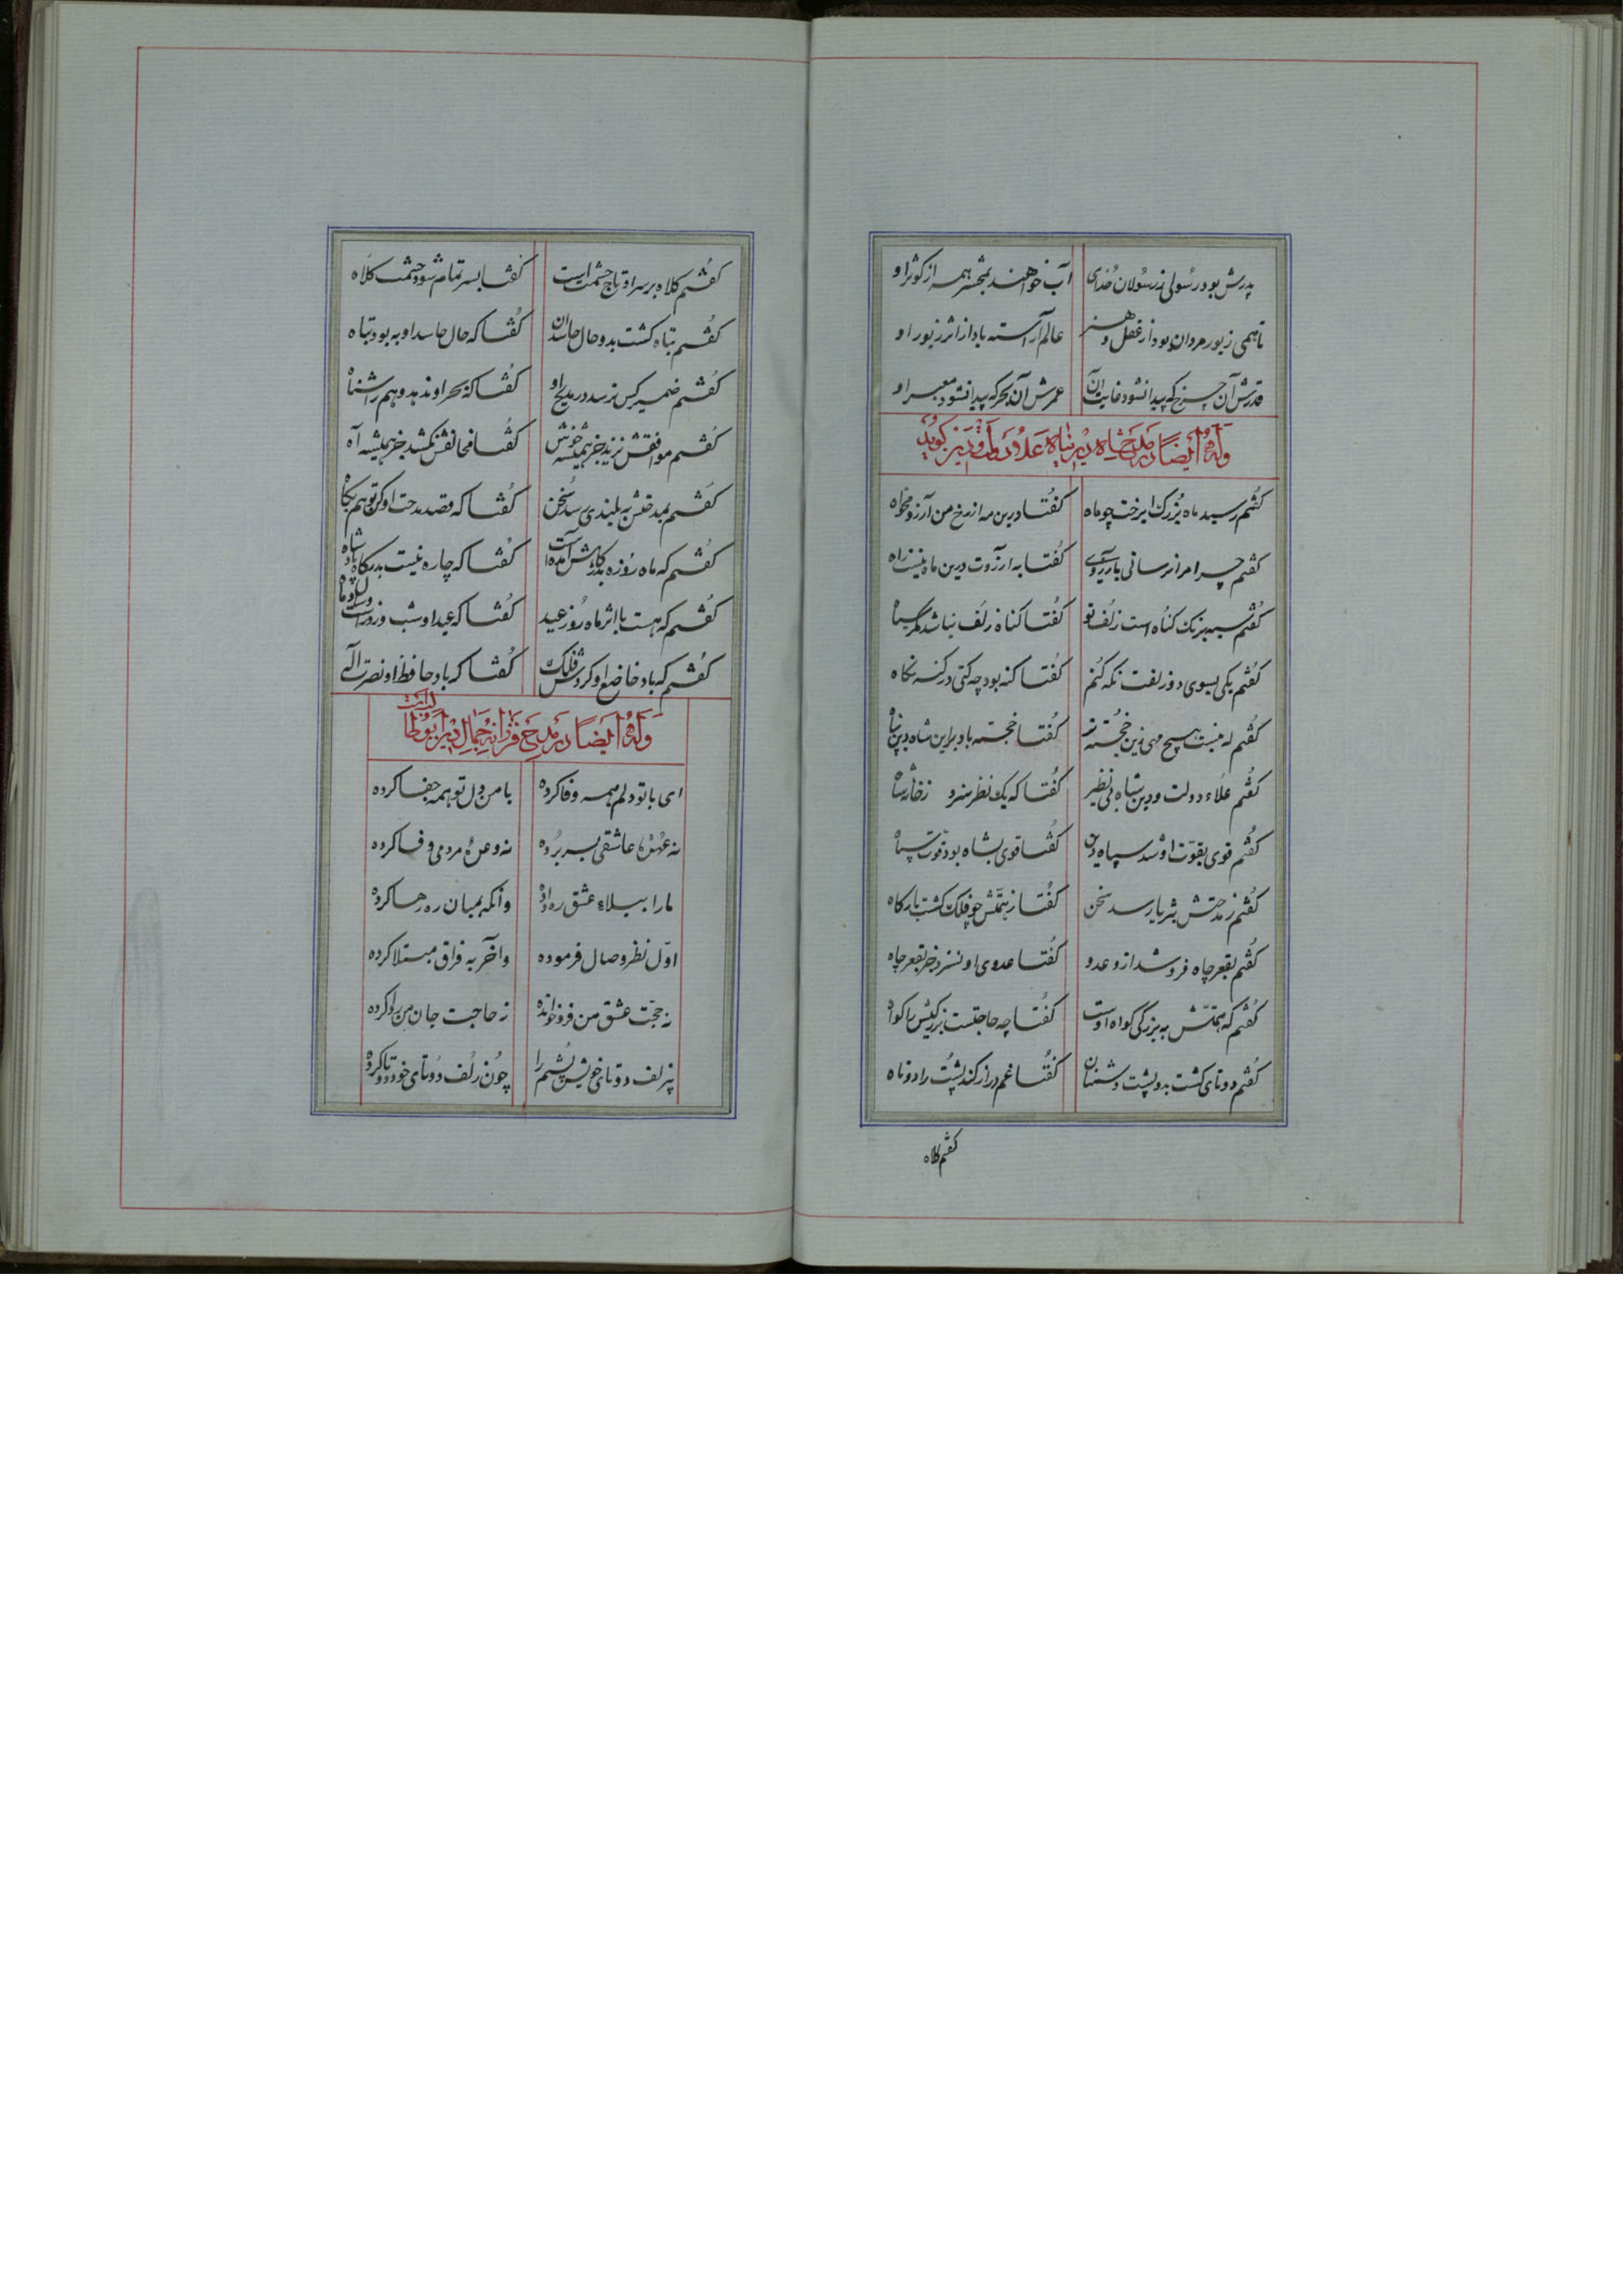 پدرش بود رسولی ز رسولان خدای آب خواهند بمحشر همه از کوثر او
تا همی زیور مردان بود از عقل و هنر عالم آراسته باد از اثر زیور او
قدرش آن چرخ که پیدا نشود غایت آن عمرش آن بحر که پیدا نشود معبر او
وله ایضا در مدح شاه دین پناه علاء دولت و دین گوید
کفتم رسید ماه بزرک ای رخت چو ماه کفتا درین مه از رخ من آرزو مخواه
کفتم چرا مرا نرسانی بآرزوی کفتا به آرزوت درین ماه نیست راه
کفتم سیه برنک کناه است زلف تو کفتا کناه زلف نباشد مکر سیاه
کفتم یکی بسوی دو زلفت نکه کنم کفتا کنه بود چه کنی در کنه نکاه
کفتم که نیست هیچ مهی زین خجسته تر کفتا خجسته باد براین شاه دین پناه
کفتم علاء دولت و دین شاه بی نظیر کفتا که یک نظر سزد
کفتم قوی بقوت او شد سپاه دین کفتا قوی بشاه بود قوت سپاه
کفتم ز مدحتش بثریا رسد سخن کفتا ز همتش چو فلک کشت بارکاه
کفتم بقعر چاه فرو شد ازو عدو کفتا عدوی او نسزد جز بقعر چاه
کفتم که همتش به بزرکی کواه اوست کفتا چه حاجتست بزرکیش را کواه
کفتم دوتای کشت بدو پشت دشمنان کفتا غم دراز کند پشت را دوتاه
کفتم کلاه
کفتم کلاه بر سر او تاج حشمت است کفتا بسر تمام شود حشمت کلاه
کفتم تباه کشت بدو حال حاسدان کفتا که حال حاسد او به بود تباه
کفتم ضمیر کس نرسد در مدیح او کفتا که بحر او ندهد وهم را شناه
کفتم موافقش نزید جز همیشه خوش کفتا مخالفش نکشد جز همیشه آه
کفتم بمدحتش به بلندی رسد سخن کفتا که قصد مدحت او کن تو هم بکاه
کفتم که ماه روزه بدرکاهش آمده است کفتا که چاره نیست بدرکاه پادشاه
کفتم که هست با اثر ماه روز عید کفتا که عید او شب و روز است و سال و ماه
کفتم که باد خاضع او کردش فلک کفتا که باد حافظ او نصرت اله
وله ایضا در مدح فرزانه جمال دین ابوطالب است
ای با تو دلم همه وفا کرده با من دل تو همه جفا کرده
نه عهده عاشقی بسر برده نه وعده مردمی وفا کرده
ما را بیلاء عشق ره داده وانکه بمیان ره رها کرده
اول نظر وصال فرموده و آخر به فراق مبتلا کرده
نه حجت عشق من فروخوانده نه حاجت جان من روا کرده
نز لف دوتای خویش پشتم را چون زلف دوتای خود دوتا کرده